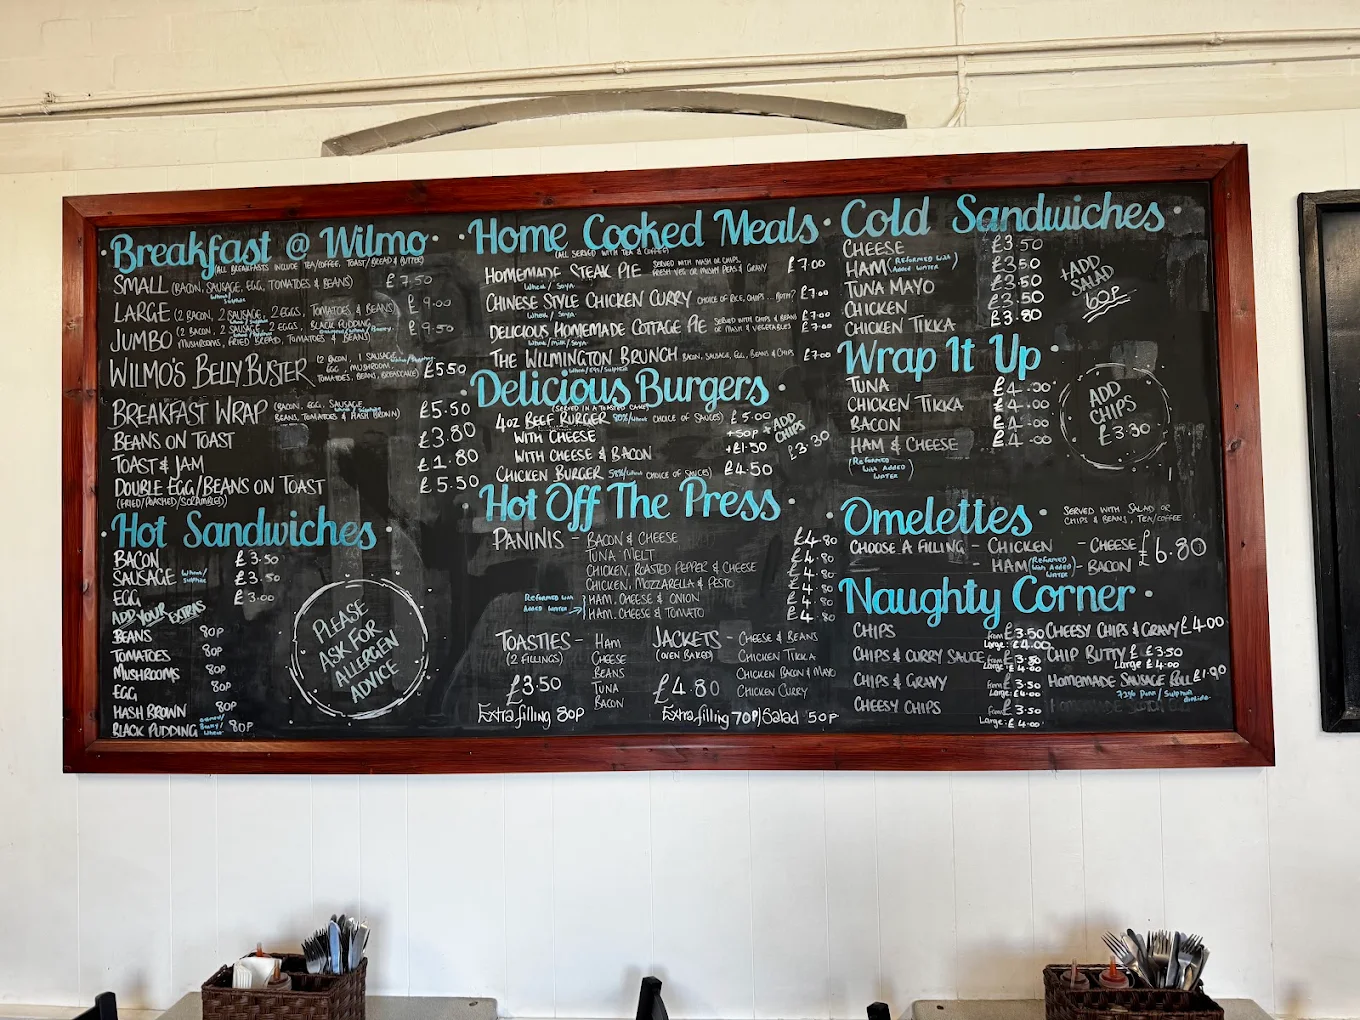 Breakfast @ Wilmo
(ALL BREAKFASTS INCLUDE TEA/COFFEE, TOAST/BREAD & BUTTER)
SMALL (BACON, SAUSAGE, EGG, TOMATOES & BEANS) £7.50
Wheat/Sulphite
LARGE (2 BACON, 2 SAUSAGE, 2 EGGS, TOMATOES & BEANS) £9.00
JUMBO (2 BACON, 2 SAUSAGE, 2 EGGS, BLACK PUDDING, £9.50
MUSHROOMS, FRIED BREAD, TOMATOES & BEANS)
WILMO'S BELLY BUSTER (2 BACON, 1 SAUSAGE, £5.50
EGG, MUSHROOM,
TOMATOES, BEANS, BREADCAKE)
BREAKFAST WRAP (BACON, EGG, SAUSAGE, £5.50
BEANS, TOMATOES & HASH BROWN)
BEANS ON TOAST £3.80
TOAST & JAM £1.80
DOUBLE EGG/BEANS ON TOAST £5.50
(FRIED/POACHED/SCRAMBLED)
Hot Sandwiches
BACON £3.50
SAUSAGE Wheat/Sulphite £3.50
EGG £3.00
ADD YOUR EXTRAS
BEANS 80P
TOMATOES 80P
MUSHROOMS 80P
EGG 80P
HASH BROWN 80P
BLACK PUDDING 80P
PLEASE
ASK FOR
ALLERGEN
ADVICE
Home Cooked Meals
(ALL SERVED WITH TEA & COFFEE)
HOMEMADE STEAK PIE SERVED WITH MASH OR CHIPS, FRESH VEG OR MUSHY PEAS & GRAVY £7.00
Wheat/Soya
CHINESE STYLE CHICKEN CURRY CHOICE OF RICE, CHIPS ... BOTH? £7.00
Wheat/Soya
DELICIOUS HOMEMADE COTTAGE PIE SERVED WITH CHIPS & BEANS £7.00
OR MASH & VEGETABLES £7.00
Wheat/Milk/Soya
THE WILMINGTON BRUNCH BACON, SAUSAGE, EGG, BEANS & CHIPS £7.00
Wheat/Egg/Sulphite
Delicious Burgers
(SERVED IN A TOASTED CAKE)
4oz BEEF BURGER 80%/Wheat CHOICE OF SAUCES) £5.00
WITH CHEESE +50P
WITH CHEESE & BACON +£1.50
+ ADD
CHIPS
£3.30
CHICKEN BURGER (CHOICE OF SAUCES) £4.50
Hot Off The Press
PANINIS - BACON & CHEESE £4.80
TUNA MELT £4.80
CHICKEN, ROASTED PEPPER & CHEESE £4.80
CHICKEN, MOZZARELLA & PESTO £4.80
Reformed with HAM, CHEESE & ONION £4.80
Added Water HAM, CHEESE & TOMATO £4.80
TOASTIES - HAM
(2 FILLINGS) CHEESE
BEANS
£3.50 TUNA
BACON
Extra filling 80p
JACKETS - CHEESE & BEANS
(OVEN BAKED) CHICKEN TIKKA
CHICKEN BACON & MAYO
£4.80 CHICKEN CURRY
Extra filling 70P/Salad 50P
Cold Sandwiches
CHEESE £3.50
HAM (Reformed With Added Water) £3.50
TUNA MAYO £3.50
CHICKEN £3.50
CHICKEN TIKKA £3.80
+ADD
SALAD
60P
Wrap It Up
TUNA £4.00
CHICKEN TIKKA £4.00
BACON £4.00
HAM & CHEESE £4.00
(Reformed
With Added
Water)
ADD
CHIPS
£3.30
Omelettes
SERVED WITH SALAD OR
CHIPS & BEANS, TEA/COFFEE
CHOOSE A FILLING - CHICKEN - CHEESE £6.80
- HAM (Reformed With Added Water) - BACON
Naughty Corner
CHIPS from £3.50
Large: £4.00
CHIPS & CURRY SAUCE from £3.50
Large: £4.00
CHIPS & GRAVY from £3.50
Large: £4.00
CHEESY CHIPS from £3.50
Large: £4.00
CHEESY CHIPS & GRAVY £4.00
CHIP BUTTY £3.50
Large £4.00
HOMEMADE SAUSAGE ROLL £1.90
72% Pork/Sulphur dioxide